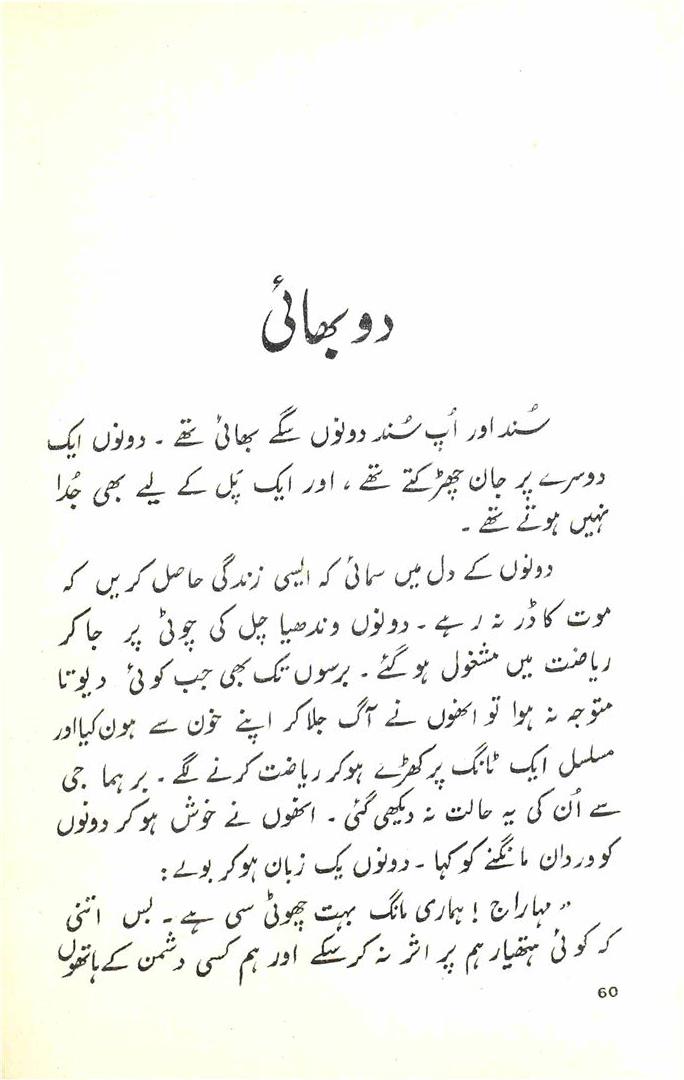 دو بھائی
سُند اور اُپ سُند دونوں سگے بھائی تھے ۔ دونوں ایک
دوسرے پر جان چھڑکتے تھے ، اور ایک پَل کے لیے بھی جُدا
نہیں ہوتے تھے ۔
دونوں کے دل میں سمائی کہ ایسی زندگی حاصل کریں کہ
موت کا ڈر نہ رہے ۔ دونوں وندھیا چل کی چوٹی پر جا کر
ریاضت میں مشغول ہو گئے ۔ برسوں تک بھی جب کوئی دیوتا
متوجہ نہ ہوا تو انھوں نے آگ جلا کر اپنے خون سے ہون کیا اور
مسلسل ایک ٹانگ پر کھڑے ہوکر ریاضت کرنے لگے ۔ برہما جی
سے اُن کی یہ حالت نہ دیکھی گئی ۔ انھوں نے خوش ہو کر دونوں
کو وردان مانگنے کو کہا ۔ دونوں یک زبان ہو کر بولے :
" مہاراج ! ہماری مانگ بہت چھوٹی سی ہے ۔ بس اتنی
کہ کوئی ہتھیار ہم پر اثر نہ کر سکے اور ہم کسی دشمن کے ہاتھوں
60